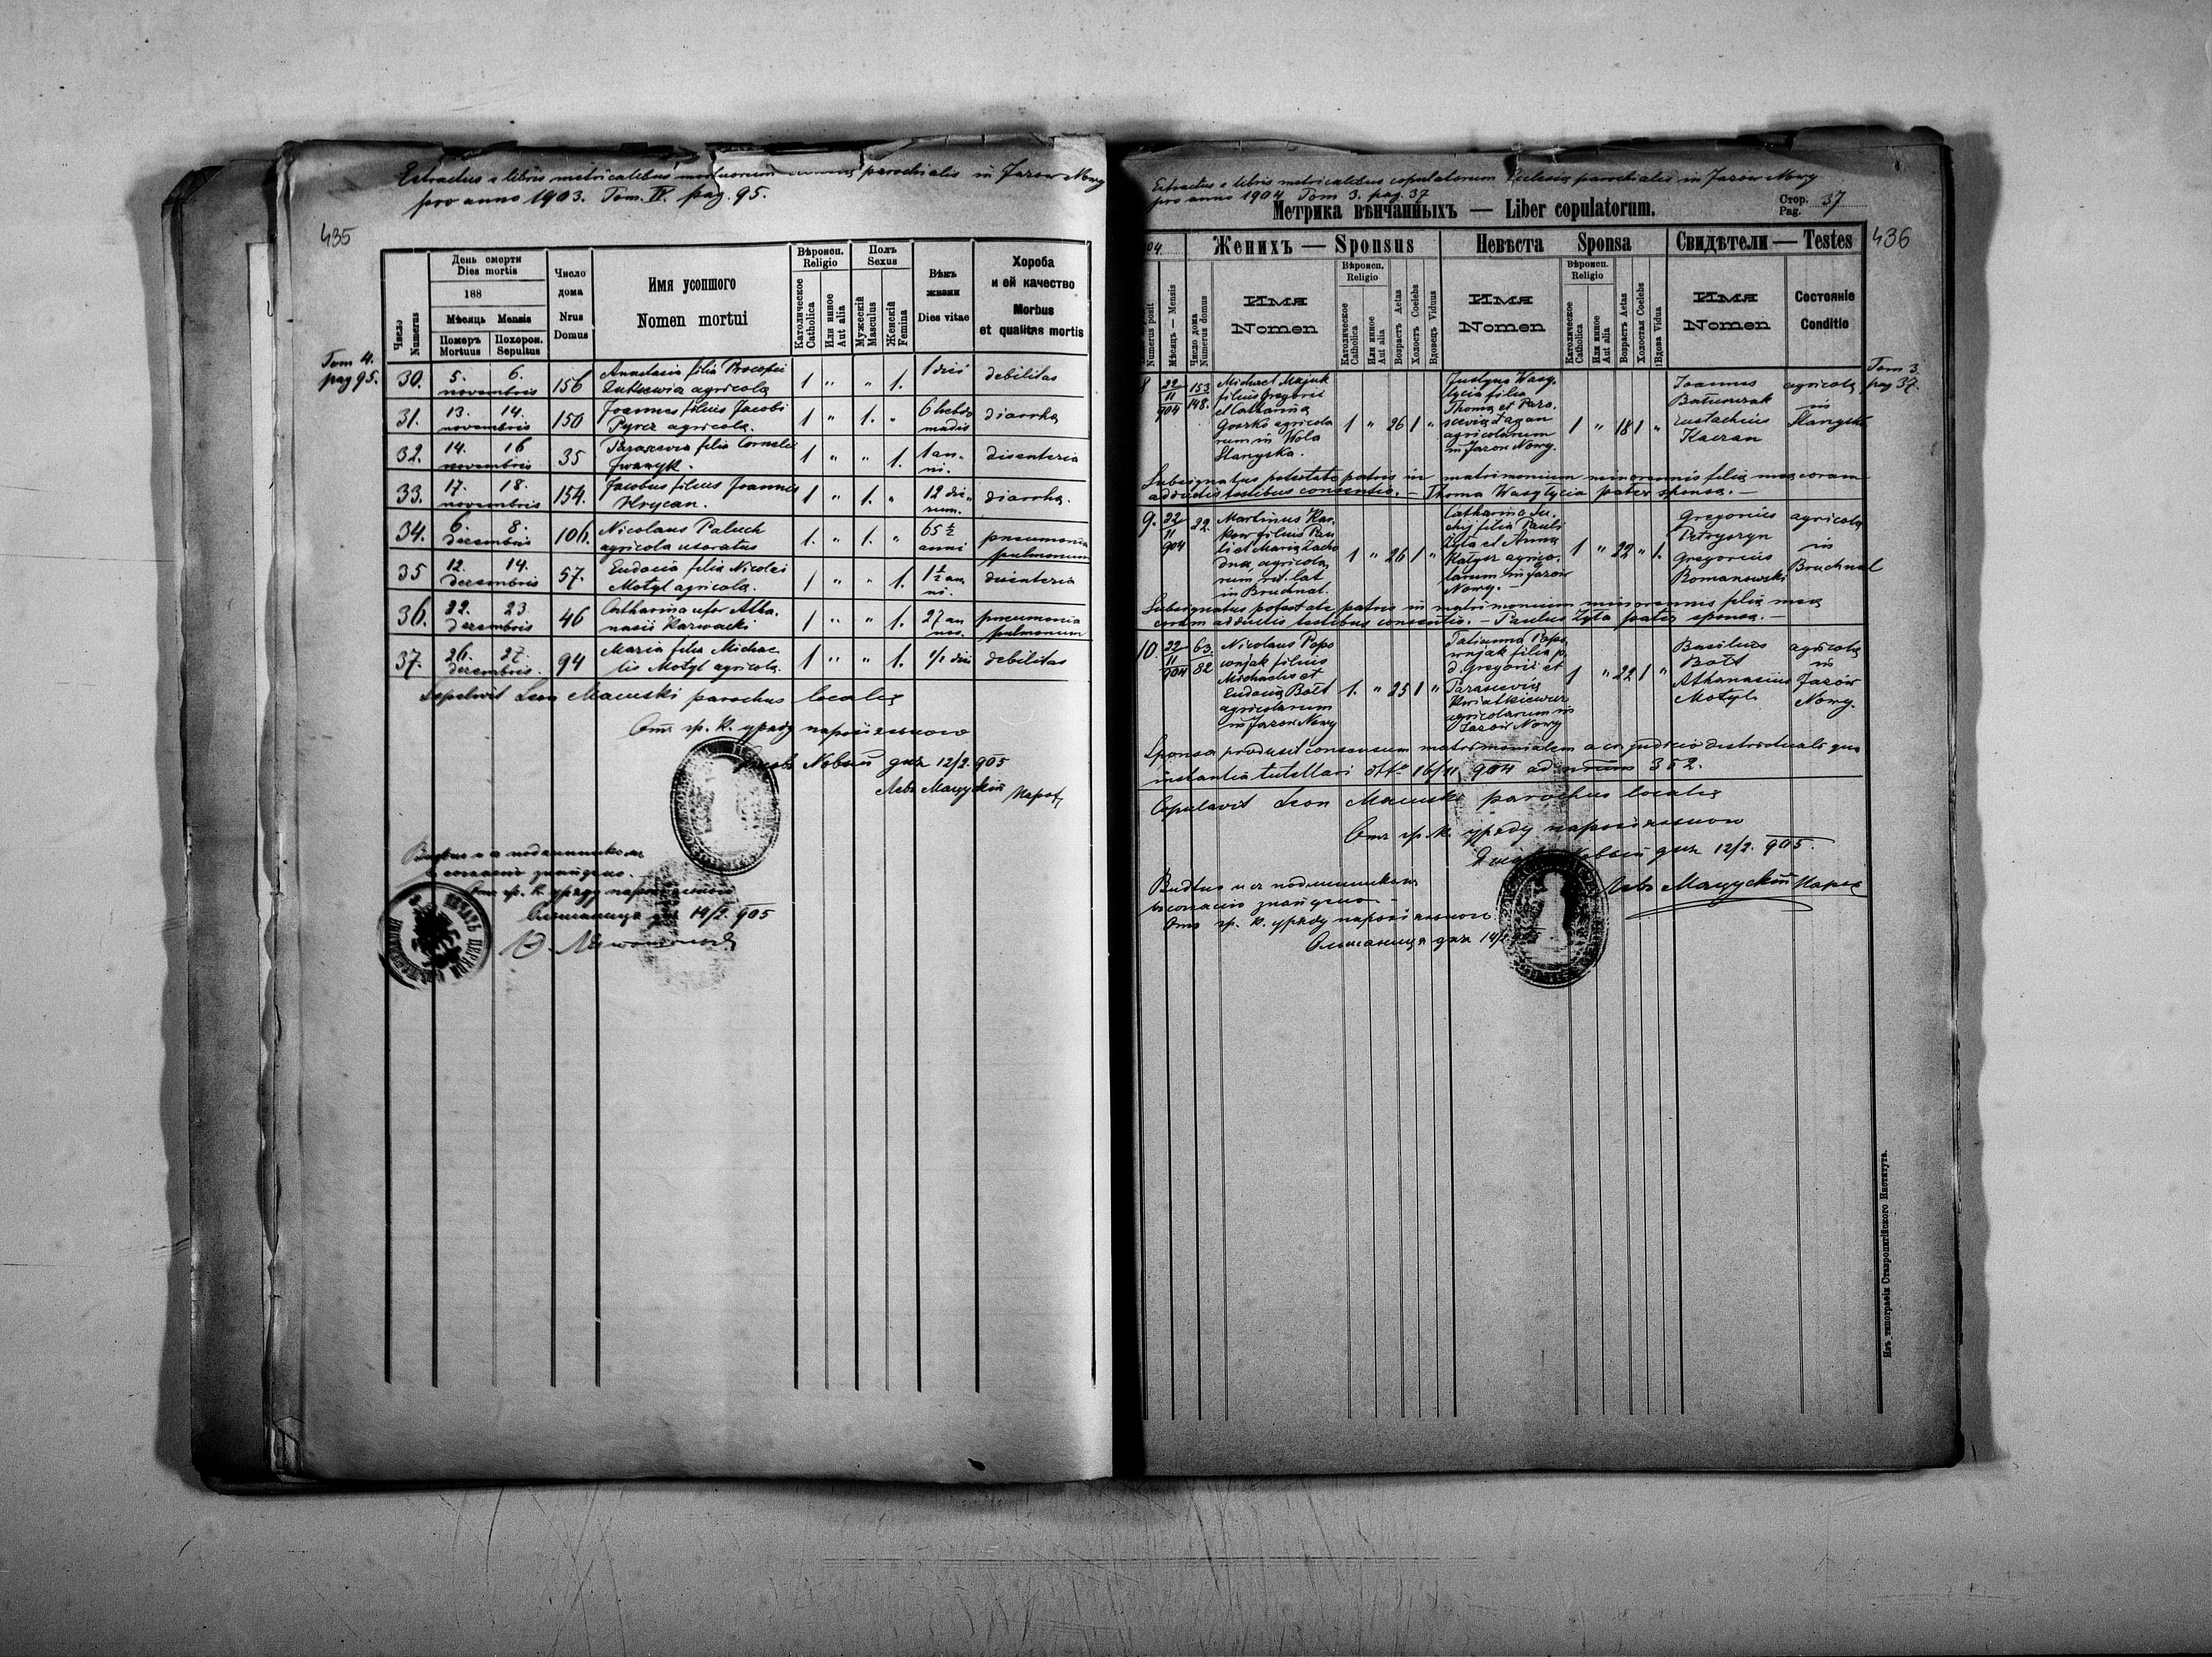 Extractus e libris metricalibus mortuorum parochialis in Jazów Nowy
pro anno 1903. Tom. IV. pag. 95.
435
Число Numerus
День смерти
Dies mortis
188
Мѣсяць Mensis
Померъ Mortuus
Похорон. Sepultus
Число дома
Nrus Domus
Имя усопшого
Nomen mortui
Вѣроисп. Religio
Католическое Catholica
Или иное Aut alia
Полъ Sexus
Мужескій Masculus
Женскій Femina
Вѣкъ жизни
Dies vitae
Хороба и ей качество
Morbus et qualitas mortis
Tom 4.
pag 95.
30. 5. 6. novembris 156 Anastasia filia Procopii agricola 1 " " 1. 1 diei debilitas
31. 13. 14. novembris 150 Joannes filius Jacobi Pyrcz agricola. 1 " 1. " 6 hebdomadis diarrha
32. 14. 16 novembris 35 Parascevia filia Cornelii Iwanyk. 1 " " 1. 1 anni. disenteria
33. 17. 18. novembris 154. Jacobus filius Joannis Hrycan. 1 " 1. " 12 dierum. diarrha.
34. 6. 8. decembris 106. Nicolaus Paluch agricola uxoratus 1. " 1. " 65 ½ anni pneumonia pulmonum
35 12. 14. decembris 57. Eudocia filia Nicolai Motyl agricola. 1 " " 1. 1½ anni. disenteria
36. 22. 23. decembris 46 Catharina uxor Athanasii Karwacki 1 " " 1. 27 annos. pneumonia pulmonum
37. 26. 27. decembris. 94 Maria filia Michaelis Motyl agricola. 1 " " 1. 1/2 diei debilitas
Sepelivit Leon Macuski parochus localis
Отъ гр. к. уряду парохіяльного
Новый дня 12/2. 905
Левъ Мацускій парох
згайдено.
Отъ гр. к. уряду парохіяльного
Ольшаница дня 14/2. 905
Extractus e libris metricalibus copulatorum Ecclesiae parochialis in Jazów Nowy
pro anno 1904 Tom 3. pag. 37
Метрика вѣнчанныхъ — Liber copulatorum.
Стор. Pag. 37
436
04
Женихъ — Sponsus
Невѣста Sponsa
Свидѣтели — Testes
Numerus posit
Мѣсяць — Mensis
Число дома Numerus domus
Имя Nomen
Вѣроисп. Religio
Католическое Catholica
Или иное Aut alia
Возрастъ Aetas
Холостъ Coelebs
Вдовецъ Viduus
Имя Nomen
Вѣроисп. Religio
Католическое Catholica
Или иное Aut alia
Возрастъ Aetas
Холостая Coelebs
Вдова Vidua
Имя Nomen
Состояніе Conditio
Tom 3
pag 37.
8 22/11 904 153 148. Michael Majuk filius Gregorii et Catharina Gorsko agricolarum in Wola Starzyska. 1 " 26 1 " Justyna Wasylycia filia Thoma et Parascevia Łazan agricolarum in Jazow Nowy. 1 " 18 1 " Joannes Eustachius Kaczan agricola in
Subsignatus potestate patris in matrimonium minorennis filia mea coram
adductis testibus consentio. — Thoma Wasylycia pater sponsa. —
9. 22/11 904 22. Martinus filius Pauli et Maria agricolarum rit. lat in Bruchnal. 1 " 26 1 " Catharina filia Pauli Zyła et Anna agricolarum in Jazów Nowy. 1 " 22 " 1. Gregorius Petryszyn Gregorius Romanowski agricola in Bruchnal
Subsignatus potestate patris in matrimonium minorennis filia mea
coram adductis testibus consentio. — Paulus Zyła pater sponsa. —
10. 22/11 904 63. 82 Nicolaus Popownjak filius Michaelis et Eudocia Bołt agricolarum in Jazow Nowy 1. " 25 1 " Tatianna Popownjak filia p. d. Gregorii et Parascevia Kwiatkiewicz agricolarum in Jazow Nowy 1 " 22 1 " Basilius Bołt Athanasius Motyl agricola in Jazów Nowy.
Sponsa produxit consensum matrimonialem a c. judicio districtuali qua
instantia tutellari dtto 16/11 904 ad nrum 352.
Copulavit Leon Macuski parochus localis
Отъ гр. к. уряду парохіяльного
Новый дня 12/2. 905.
Левъ Мацускій парох
Отъ гр. к. уряду парохіяльного
Ольшаница дня 14/2 905
Изъ типографіи Ставропигійского Института.